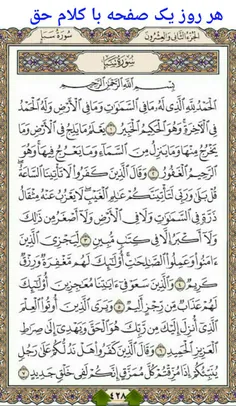 هر روز یک صفحه با کلام حق
الجزء الثاني والعشرون سورة سبإ
سورة سبإ
بسم الله الرحمن الرحيم
الحمد لله الذي له ما في السموت وما في الأرض وله الحمد
في الأخرة وهو الحكيم الخبير ١ يعلم ما يلج في الأرض وما
يخرج منها وما ينزل من السماء وما يعرج فيها وهو
الرحيم الغفور ٢ وقال الذين كفروا لا تأتينا الساعة
قل بلى وربي لتأتينكم علم الغيب لا يعزب عنه مثقال
ذرة في السموت ولا في الأرض ولا أصغر من ذلك
ولا أكبر إلا في كتب مبين ٣ ليجزي الذين
ءامنوا وعملوا الصلحت أولئك لهم مغفرة ورزق
كريم ٤ والذين سعو في ءايتنا معجزين أولئك
لهم عذاب من رجز أليم ٥ ويرى الذين أوتوا العلم
الذي أنزل إليك من ربك هو الحق ويهدي إلى صرط
العزيز الحميد ٦ وقال الذين كفروا هل ندلكم على رجل
ينبئكم إذا مزقتم كل ممزق إنكم لفي خلق جديد ٧
٤٢٨